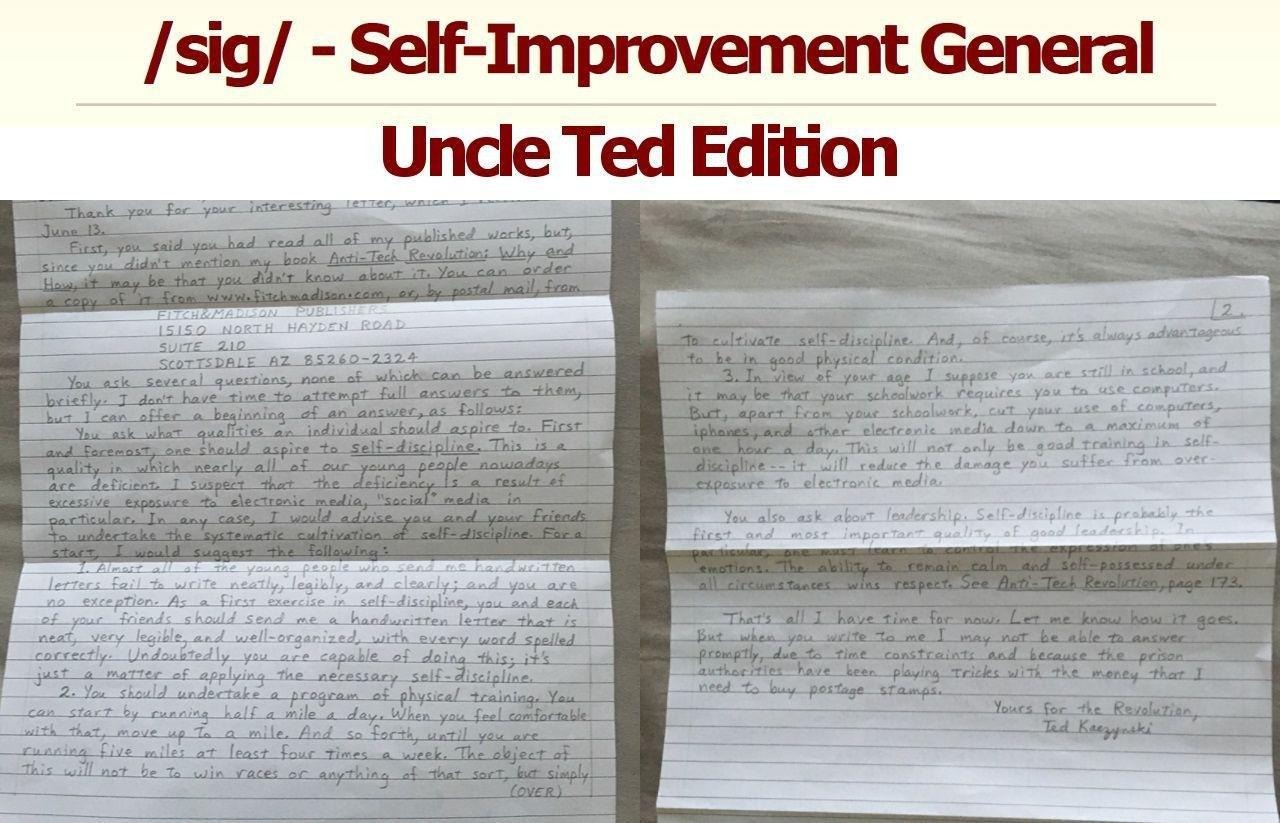 /sig/ - Self-Improvement General
Uncle Ted Edition
Thank you for your interesting letter, which I
June 13.
First, you said you had read all of my published works, but,
since you didn't mention my book Anti-Tech Revolution: Why and
How, it may be that you didn't know about it. You can order
a copy of it from www.fitchmadison.com, or, by postal mail, from
FITCH&MADISON PUBLISHERS
15150 NORTH HAYDEN ROAD
SUITE 210
SCOTTSDALE AZ 85260-2324
You ask several questions, none of which can be answered
briefly. I don't have time to attempt full answers to them,
but I can offer a beginning of an answer, as follows:
You ask what qualities an individual should aspire to. First
and foremost, one should aspire to self-discipline. This is a
quality in which nearly all of our young people nowadays
are deficient. I suspect that the deficiency is a result of
excessive exposure to electronic media, "social" media in
particular. In any case, I would advise you and your friends
to undertake the systematic cultivation of self-discipline. For a
start, I would suggest the following:
1. Almost all of the young people who send me handwritten
letters fail to write neatly, legibly, and clearly; and you are
no exception. As a first exercise in self-discipline, you and each
of your friends should send me a handwritten letter that is
neat, very legible, and well-organized, with every word spelled
correctly. Undoubtedly you are capable of doing this; it's
just a matter of applying the necessary self-discipline.
2. You should undertake a program of physical training. You
can start by running half a mile a day. When you feel comfortable
with that, move up to a mile. And so forth, until you are
running five miles at least four times a week. The object of
this will not be to win races or anything of that sort, but simply
(OVER)
2.
to cultivate self-discipline. And, of course, it's always advantageous
to be in good physical condition.
3. In view of your age I suppose you are still in school, and
it may be that your schoolwork requires you to use computers.
But, apart from your schoolwork, cut your use of computers,
iphones, and other electronic media down to a maximum of
one hour a day. This will not only be good training in self-
discipline--it will reduce the damage you suffer from over-
exposure to electronic media.
You also ask about leadership. Self-discipline is probably the
first and most important quality of good leadership. In
particular, one must learn to control the expression of one's
emotions. The ability to remain calm and self-possessed under
all circumstances wins respect. See Anti-Tech Revolution, page 173.
That's all I have time for now. Let me know how it goes.
But when you write to me I may not be able to answer
promptly, due to time constraints and because the prison
authorities have been playing tricks with the money that I
need to buy postage stamps.
Yours for the Revolution,
Ted Kaczynski